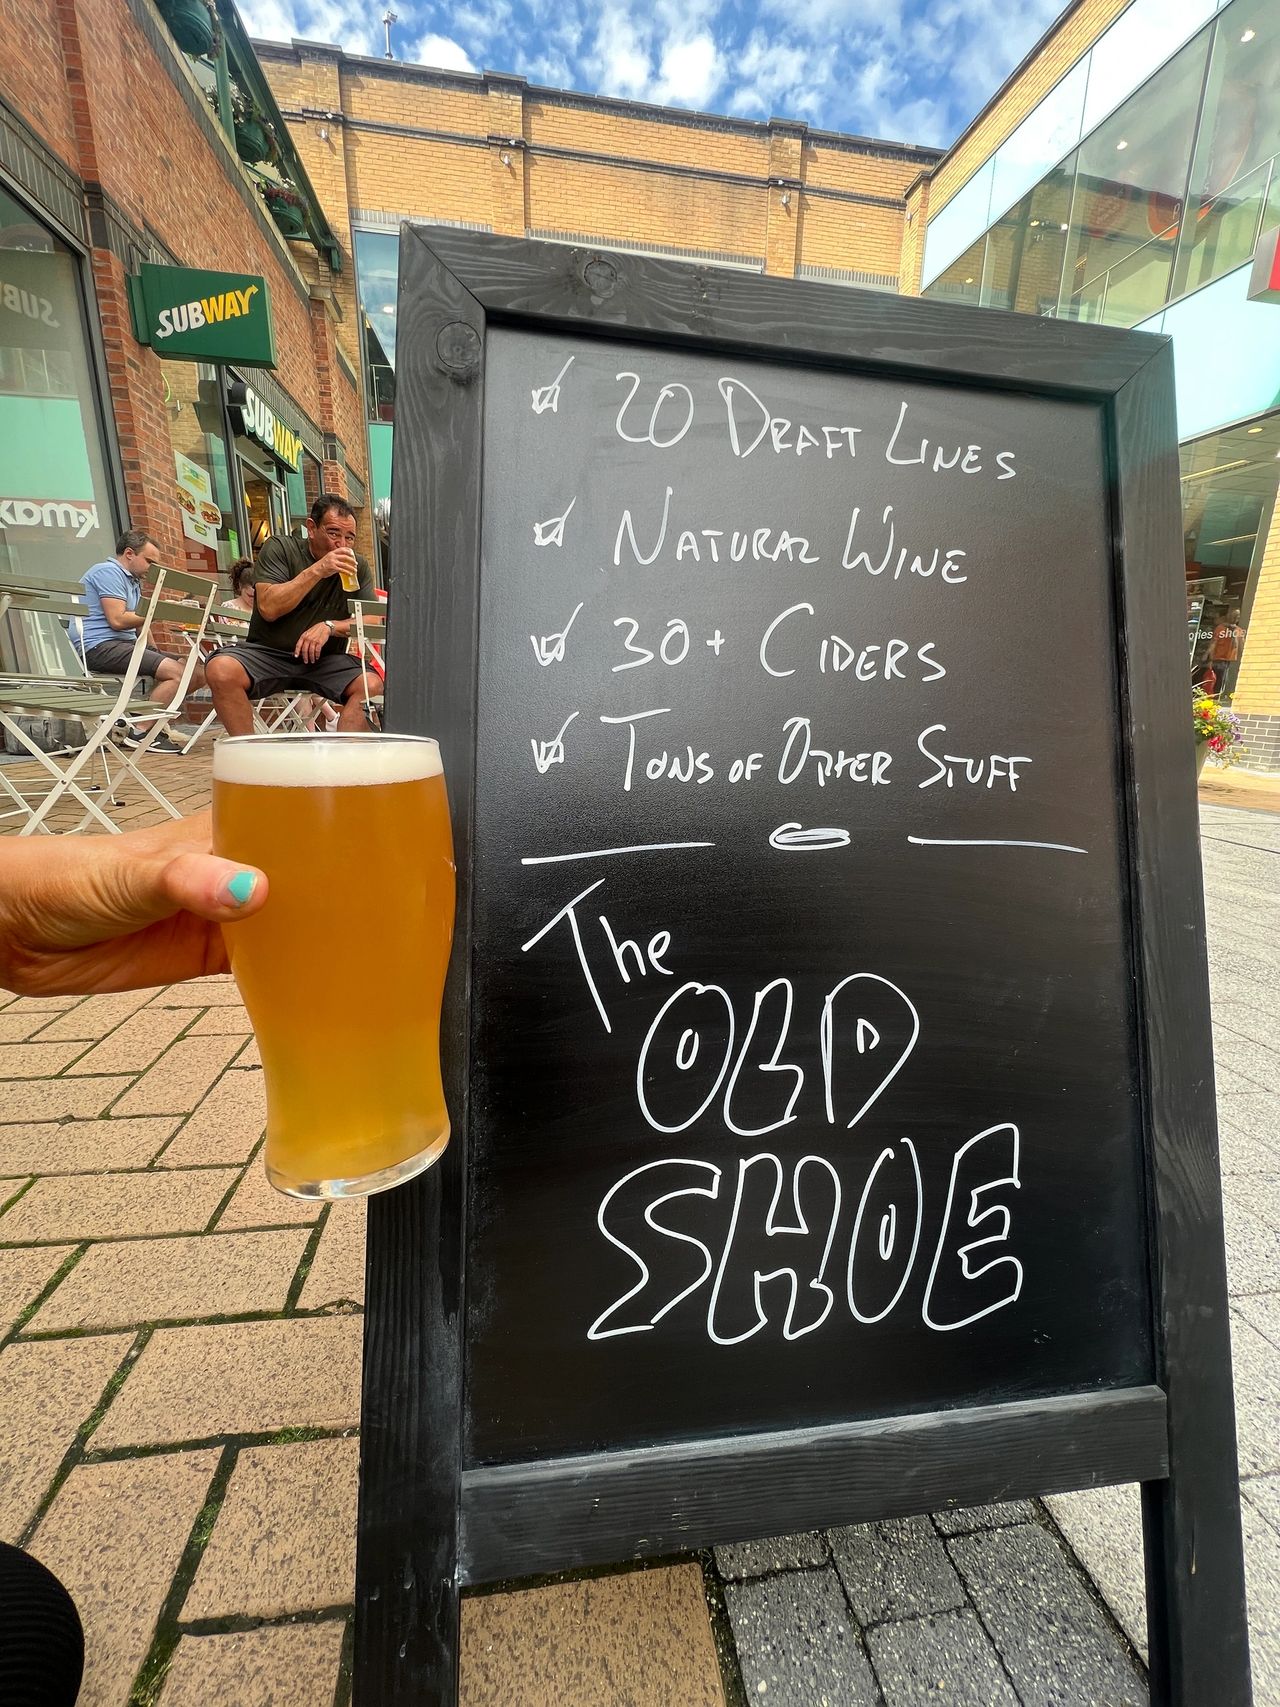 SUBWAY
SUBWAY
SUB
k-max
ories shoe
20 DRAFT LINES
NATURAL WINE
30+ CIDERS
TONS OF OTHER STUFF
The
OLD
SHOE